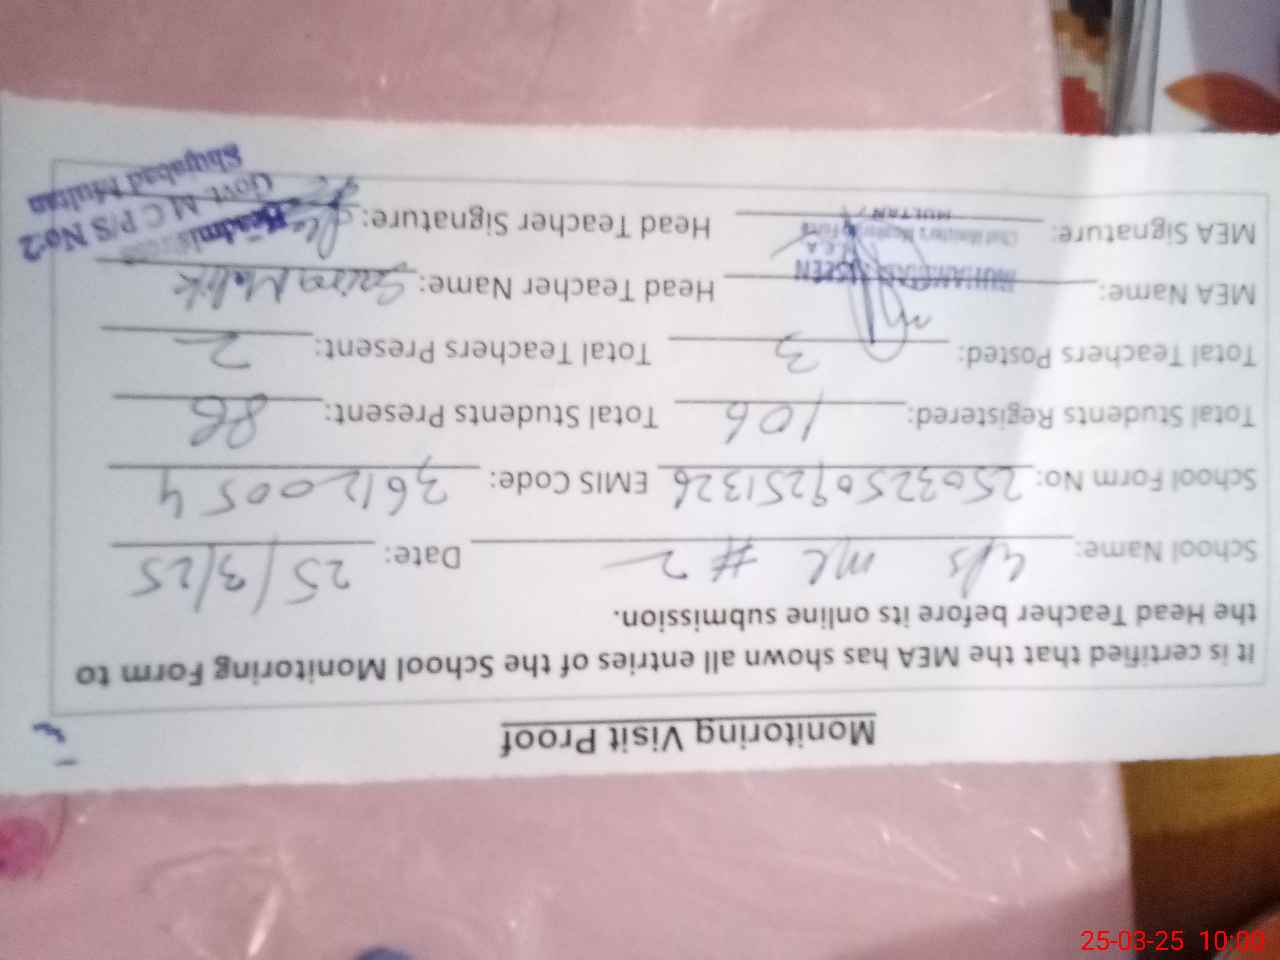 Monitoring Visit Proof
It is certified that the MEA has shown all entries of the School Monitoring Form to
the Head Teacher before its online submission.
School Name: G/S MC # 2 Date: 25/3/25
School Form No: 25032509251326 EMIS Code: 36120054
Total Students Registered: 106 Total Students Present: 86
Total Teachers Posted: 3 Total Teachers Present: 2
MEA Name: Head Teacher Name: Saira Malik
MEA Signature: Head Teacher Signature:
MULTAN
Govt. M C P/S No 2
Shujabad Multan
25-03-25 10:00